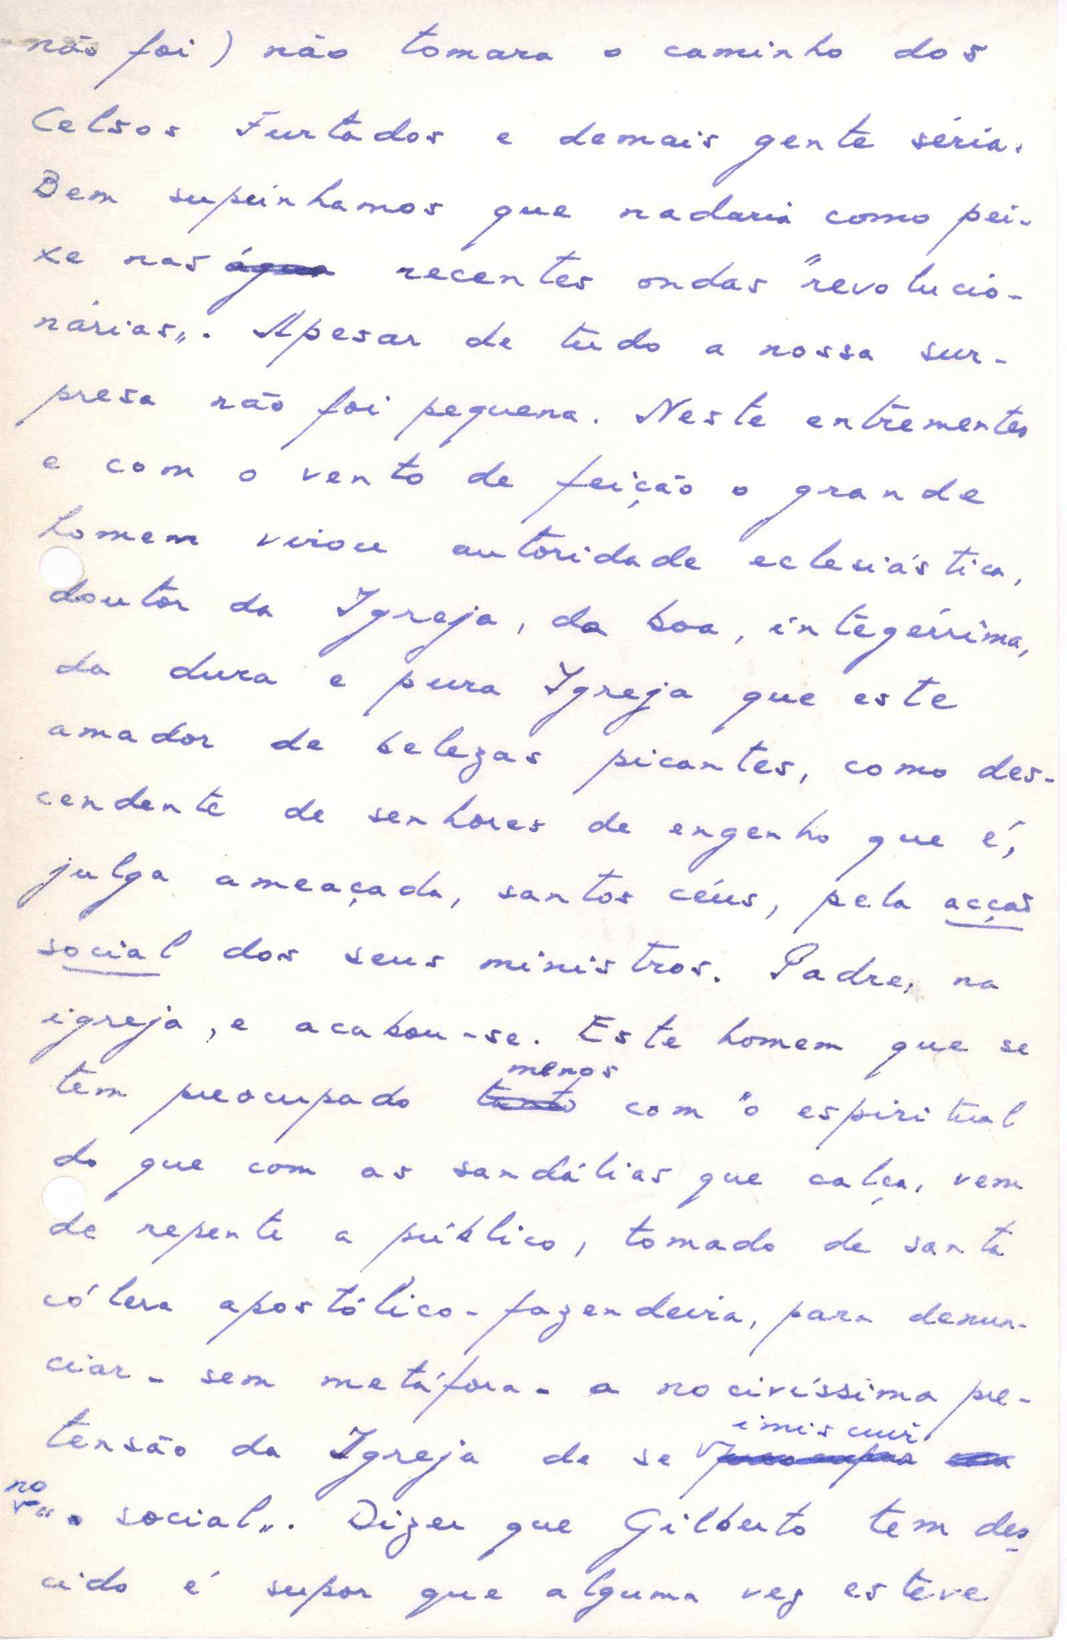 não foi) não tomara o caminho dos
Celsos Furtados e demais gente séria.
Bem supúnhamos que nadaria como pei-
xe nas água recentes ondas "revolucio-
nárias". Apesar de tudo a nossa sur-
presa não foi pequena. Neste entrementes
e com o vento de feição o grande
homem virou autoridade eclesiástica,
doutor da Igreja, da boa, integérrima,
da dura e pura Igreja que este
amador de belezas picantes, como des-
cendente de senhores de engenho que é,
julga ameaçada, santos céus, pela acção
social dos seus ministros. Padre, na
igreja, e acabou-se. Este homem que se
menos
tem preocupado tanto com "o espiritual
do que com as sandálias que calça, vem
de repente a público, tomado de santa
cólera apostólico-fazendeira, para denun-
ciar - sem metáfora - a nocivíssima pre-
imiscuir
tensão da Igreja de se preocupar com
no
"o social". Dizer que Gilberto tem des-
cido é supor que alguma vez esteve